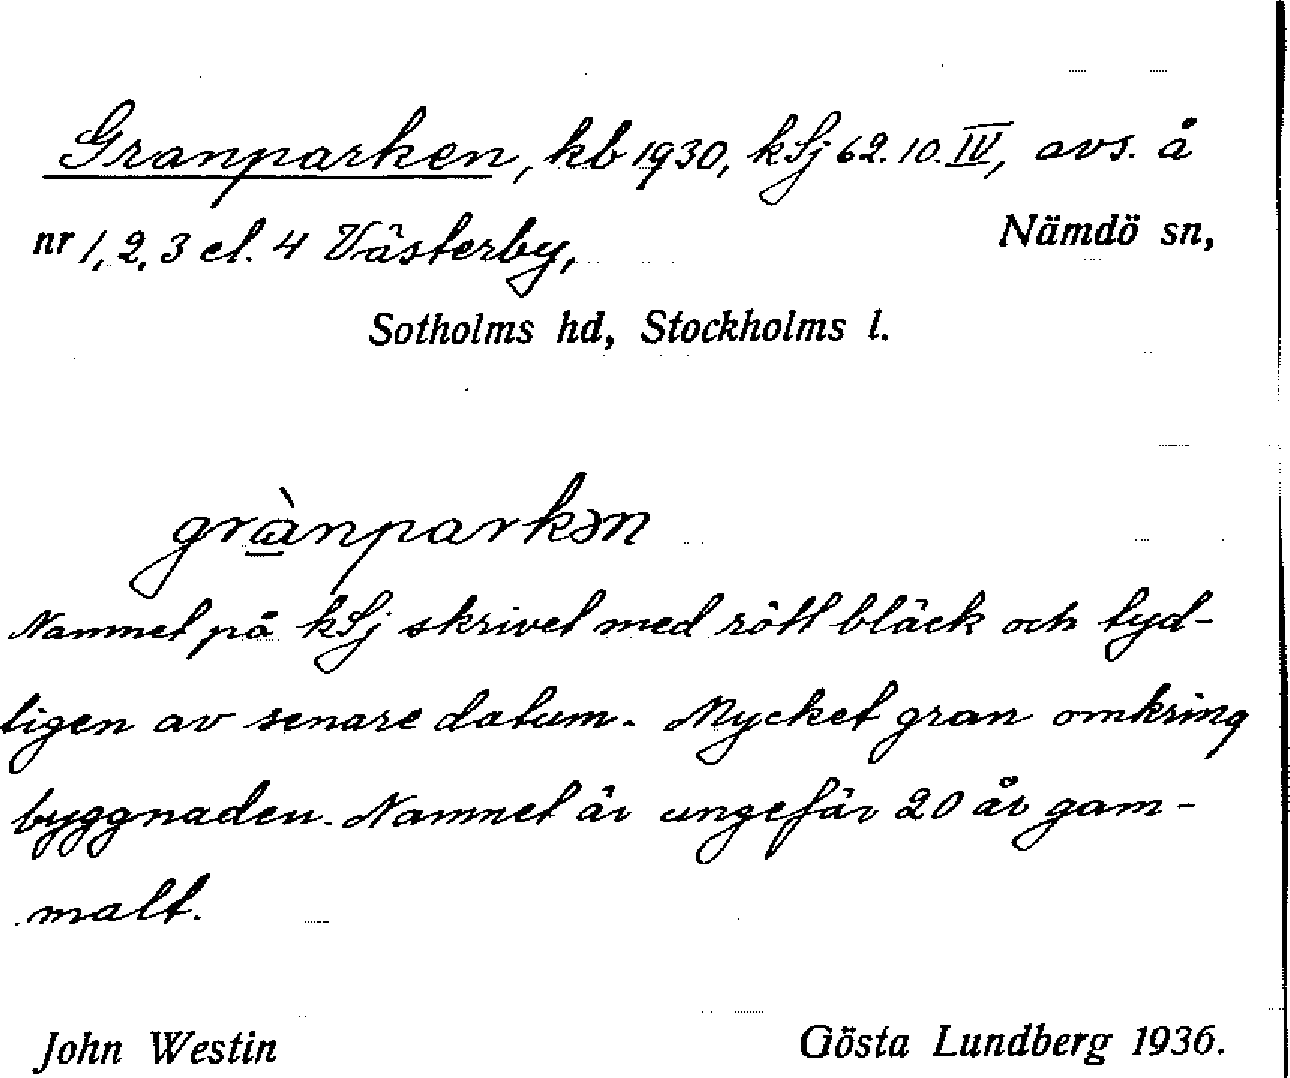 Granparken, kb 1930, kSj 62.10.IV, avs. å
nr 1, 2, 3 el. 4 Västerby, Nämdö sn,
Sotholms hd, Stockholms l.
grànparkən
Namnet på kSj skrivet med rött bläck och tyd-
ligen av senare datum. Mycket gran omkring
byggnaden. Namnet är ungefär 20 år gam-
malt.
John Westin Gösta Lundberg 1936.